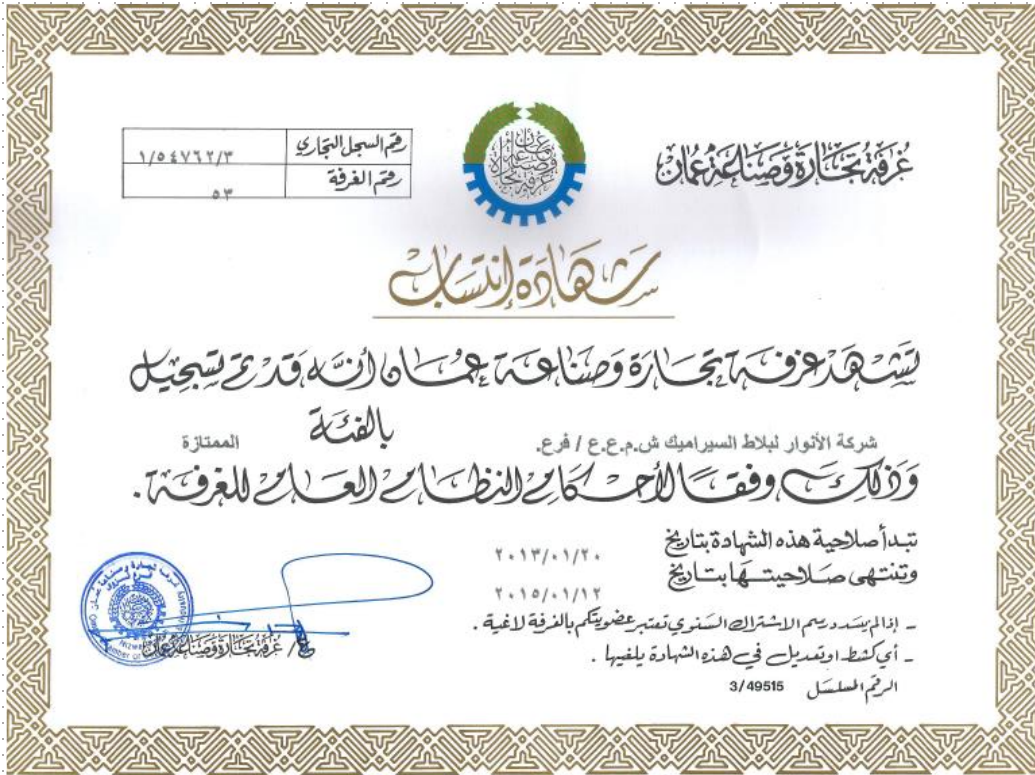 غرفة تجارة وصناعة عمان
رقم السجل التجاري ١/٥٤٧٦٢/٣
رقم الغرفة ٥٣
غرفة تجارة وصناعة عمان
شهادة إنتساب
تشهد غرفة تجارة وصناعة عمان أنه قد تم تسجيل
شركة الأنوار لبلاط السيراميك ش.م.ع.ع / فرع. بالفئة الممتازة
وذلك وفقا لأحكام النظام العام للغرفة .
تبدأ صلاحية هذه الشهادة بتاريخ ٢٠١٣/٠١/٢٠
وتنتهى صلاحيتها بتاريخ ٢٠١٥/٠١/١٢
ـ إذا لم يسدد رسم الاشتراك السنوي تعتبر عضويتكم بالغرفة لاغية .
ـ أي كشط او تعديل في هذه الشهادة يلغيها .
الرقم المسلسل 3/49515
ع/ غرفة تجارة وصناعة عمان
غرفة تجارة وصناعة عمان
فرع نزوى